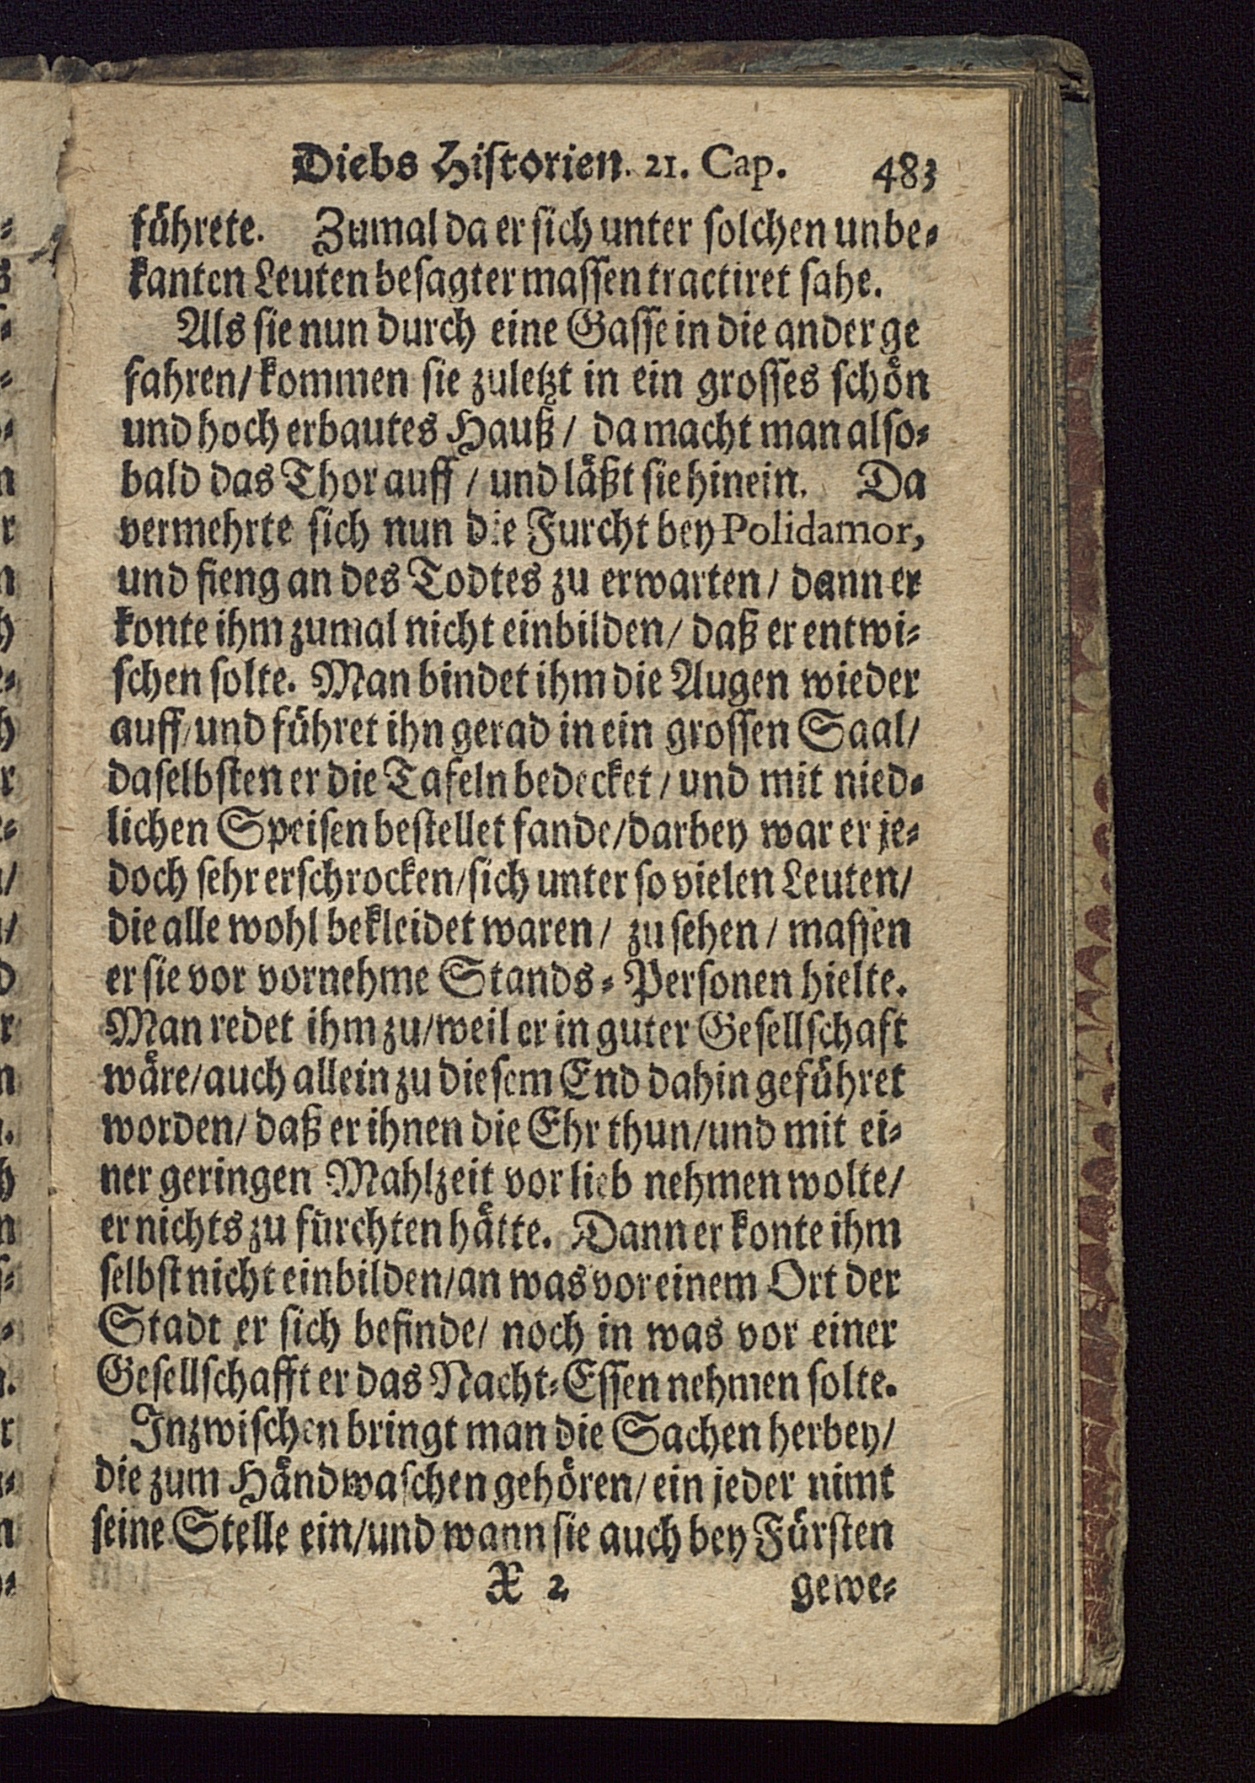 Diebs Historien. 21. Cap. 483
führete. Zumal da er sich unter solchen unbe-
kanten Leuten besagter massen tractiret sahe.
Als sie nun durch eine Gasse in die ander ge
fahren/ kommen sie zuletzt in ein grosses schön
und hoch erbautes Hauß/ da macht man also-
bald das Thor auff/ und läßt sie hinein. Da
vermehrte sich nun die Furcht bey Polidamor,
und fieng an des Todtes zu erwarten/ dann er
konte ihm zumal nicht einbilden/ daß er entwi-
schen solte. Man bindet ihm die Augen wieder
auff/ und führet ihn gerad in ein grossen Saal/
daselbsten er die Tafeln bedecket/ und mit nied-
lichen Speisen bestellet fande/ darbey war er je-
doch sehr erschrocken/ sich unter so vielen Leuten/
die alle wohl bekleidet waren/ zu sehen/ massen
er sie vor vornehme Stands-Personen hielte.
Man redet ihm zu/ weil er in guter Gesellschaft
wäre/ auch allein zu diesem End dahin geführet
worden/ daß er ihnen die Ehr thun/ und mit ei-
ner geringen Mahlzeit vor lieb nehmen wolte/
er nichts zu fürchten hätte. Dann er konte ihm
selbst nicht einbilden/ an was vor einem Ort der
Stadt er sich befinde/ noch in was vor einer
Gesellschafft er das Nacht-Essen nehmen solte.
Inzwischen bringt man die Sachen herbey/
die zum Händwaschen gehören/ ein jeder nimt
seine Stelle ein/ und wann sie auch bey Fürsten
X 2 gewe-